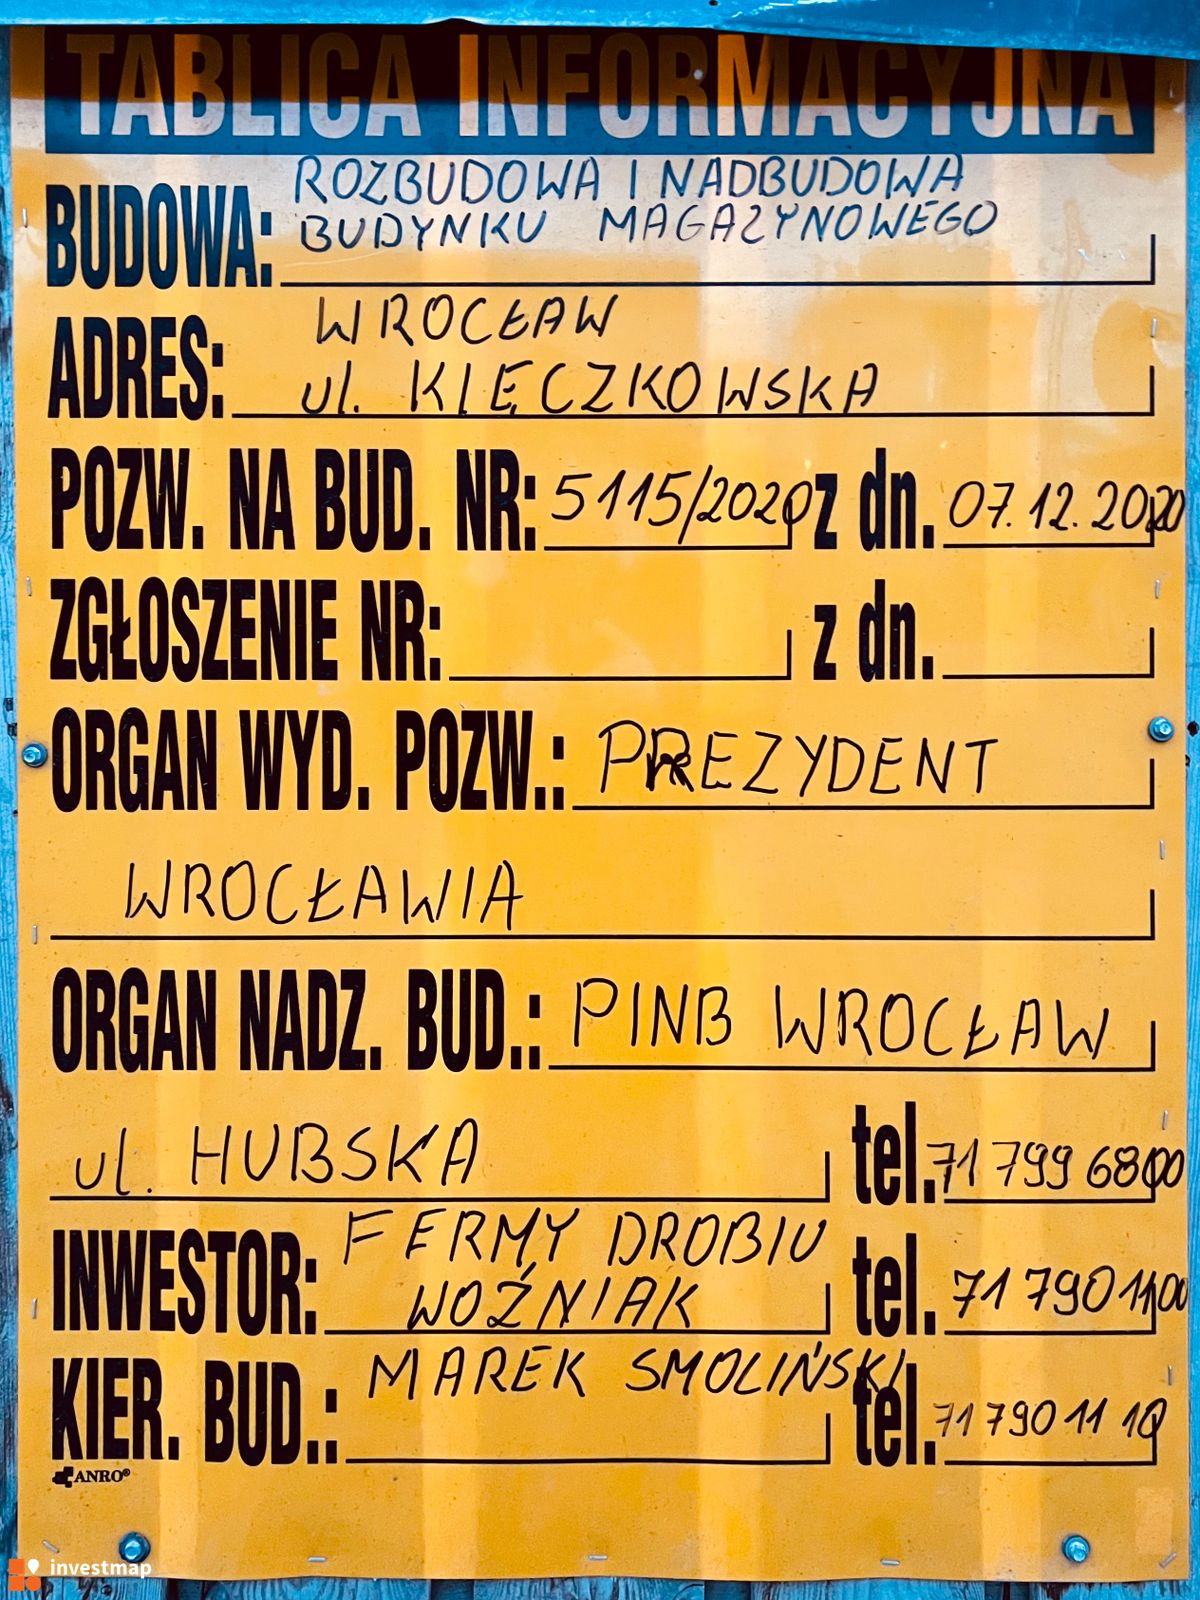 TABLICA INFORMACYJNA
BUDOWA: ROZBUDOWA I NADBUDOWA
BUDYNKU MAGAZYNOWEGO
ADRES: WROCŁAW
ul. KIEŁCZKOWSKA
POZW. NA BUD. NR: 5115/2020 z dn. 07.12.2020
ZGŁOSZENIE NR: z dn.
ORGAN WYD. POZW.: PREZYDENT
WROCŁAWIA
ORGAN NADZ. BUD.: PINB WROCŁAW
ul. HUBSKA tel. 71 799 6800
INWESTOR: FERMY DROBIU
WOŹNIAK tel. 71 790 1100
KIER. BUD.: MAREK SMOLIŃSKI tel. 71 790 11 10
ANRO®
investmap